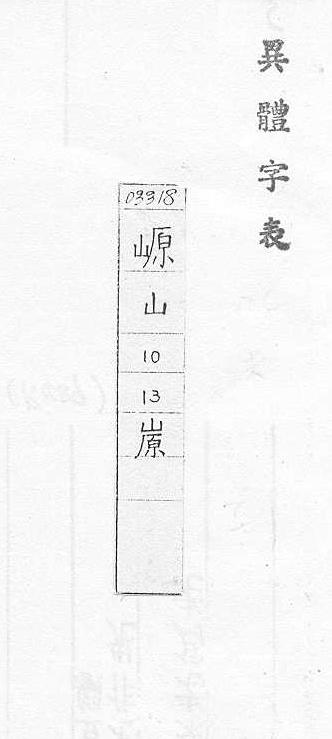 異體字表
03318
山
10
13